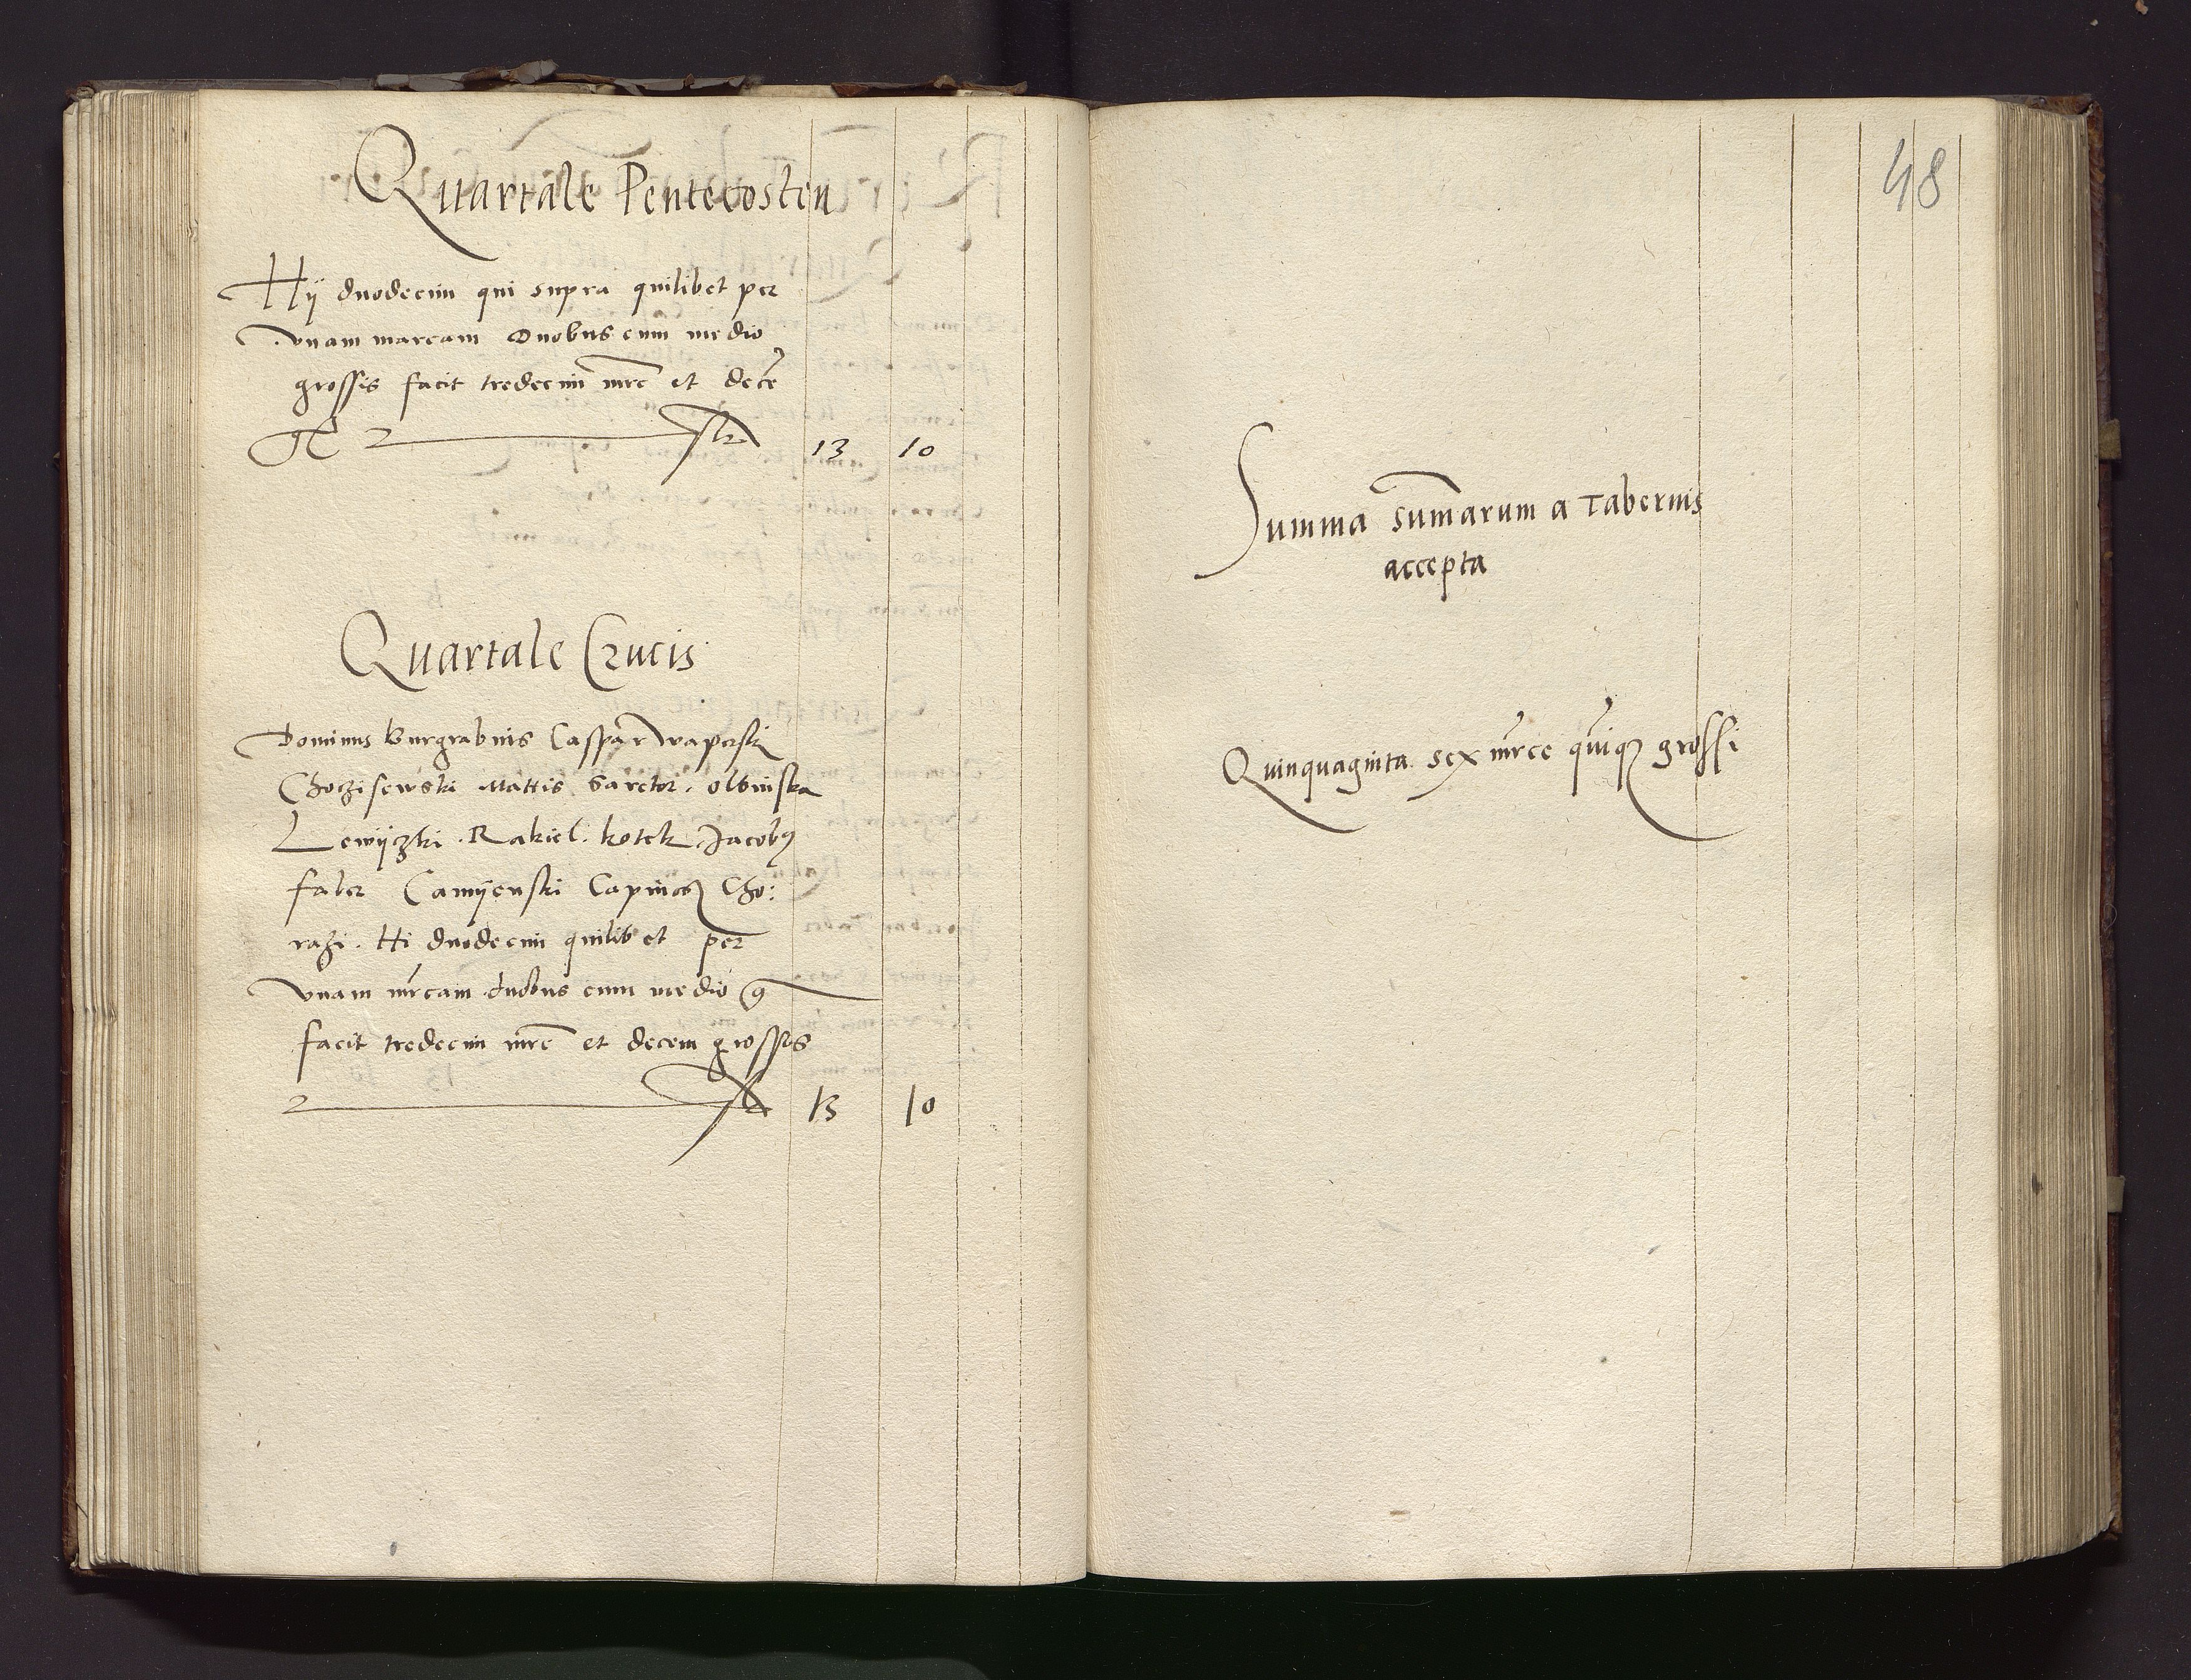 Quartale Pentecosten
Hij duodecim qui supra quilibet per
vnam marcam duobus cum medio
grossis facit tredecim mrc et dece
13 10
Quartale Crucis
Dominus Burgrabius Caspar wapelski
Choczisewski Mattis Sartor. olbinska
Lewijczki. Rakiel. kotek Jacobus
faber Camijenski Capinos Cho:
razi. Hi duodecim quilibet per
vnam mrcam duobus cum medio g
facit tredecim mrc et decem grossis
13 10
48
Summa Summarum a Tabernis
accepta
Quinquaginta sex mrce quinque grossi